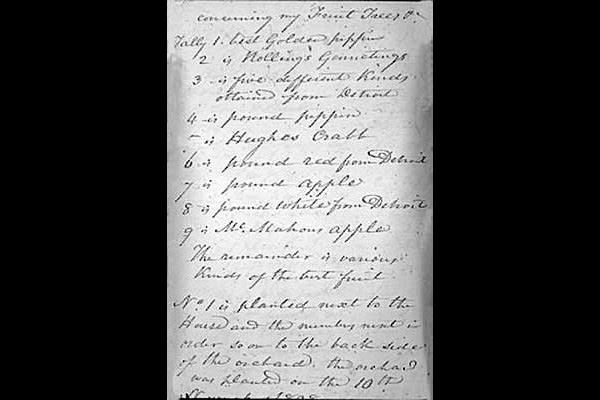 concerning my Fruit Trees &c
Tally 1. best Golden pippin
2 is Rolling's Gennetings
3 is five different Kinds
obtained from Detroit
4 is pound pippin
5 is Hughes Crabb
6 is pound red from Detroit
7 is pound apple
8 is pound White from Detroit
9 is Mc. Mahons apple
The remainder is various
Kinds of the best fruit
No. 1 is planted next to the
House and the numbers next in
order so on to the back side
of the orchard. the orchard
was planted on the 10th